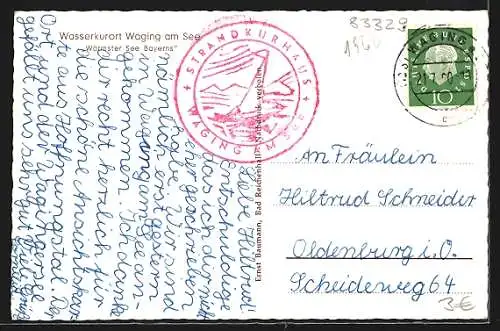 Wasserkurort Waging am See
"Wärmster See Bayerns"
83329
1960
STRANDKURHAUS
WAGING AM SEE
10
Liebe Hiltrud!
Entschuldige
das ich dir nicht
eher geschrieben
habe. Wir sind
nämlich erst gestern
in Waging am See an-
gekommen. Ich danke
dir recht herzlich für
die schöne Ansichtskar
te aus
Ort und der Waginger See
gefällt uns sehr gut
Ernst Baumann, Bad Reichenhall. Nachdruck verboten.
An Fräulein
Hiltrud Schneider
Oldenburg i. O.
Scheideweg 64
3€